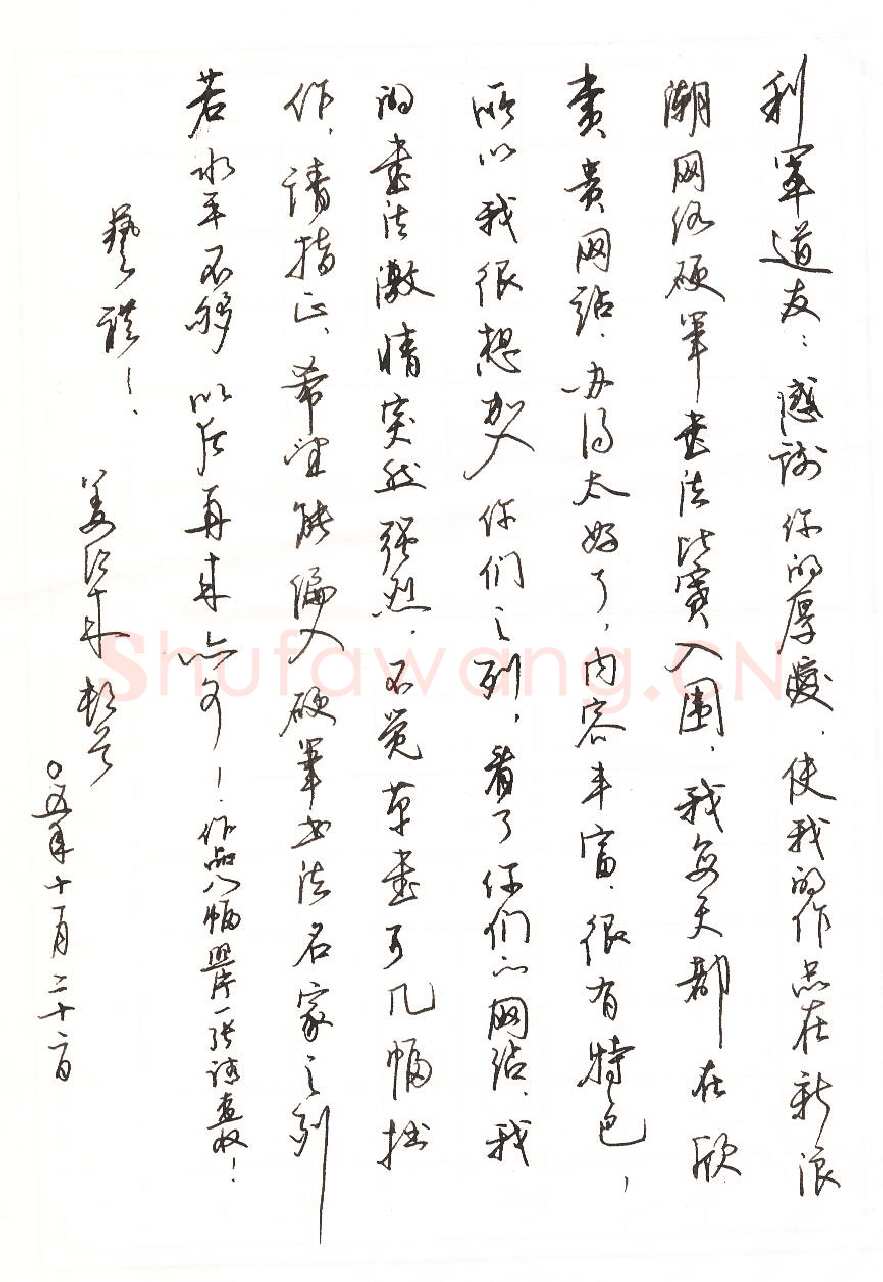 利军道友：感谢你的厚爱，使我的作品在新浪
潮网络硬笔书法比赛入围，我每天都在欣
赏贵网站，办得太好了，内容丰富，很有特色，
所以我很想加入你们之列，看了你们的网站，我
的书法激情突然强烈，不觉草书了几幅拙
作，请指正，希望能编入硬笔书法名家之列
若水平不够以后再来亦可！作品八幅照片一张请查收！
艺祺！
姜 顿首
〇五年十一月二十二日
Shufawang.CN